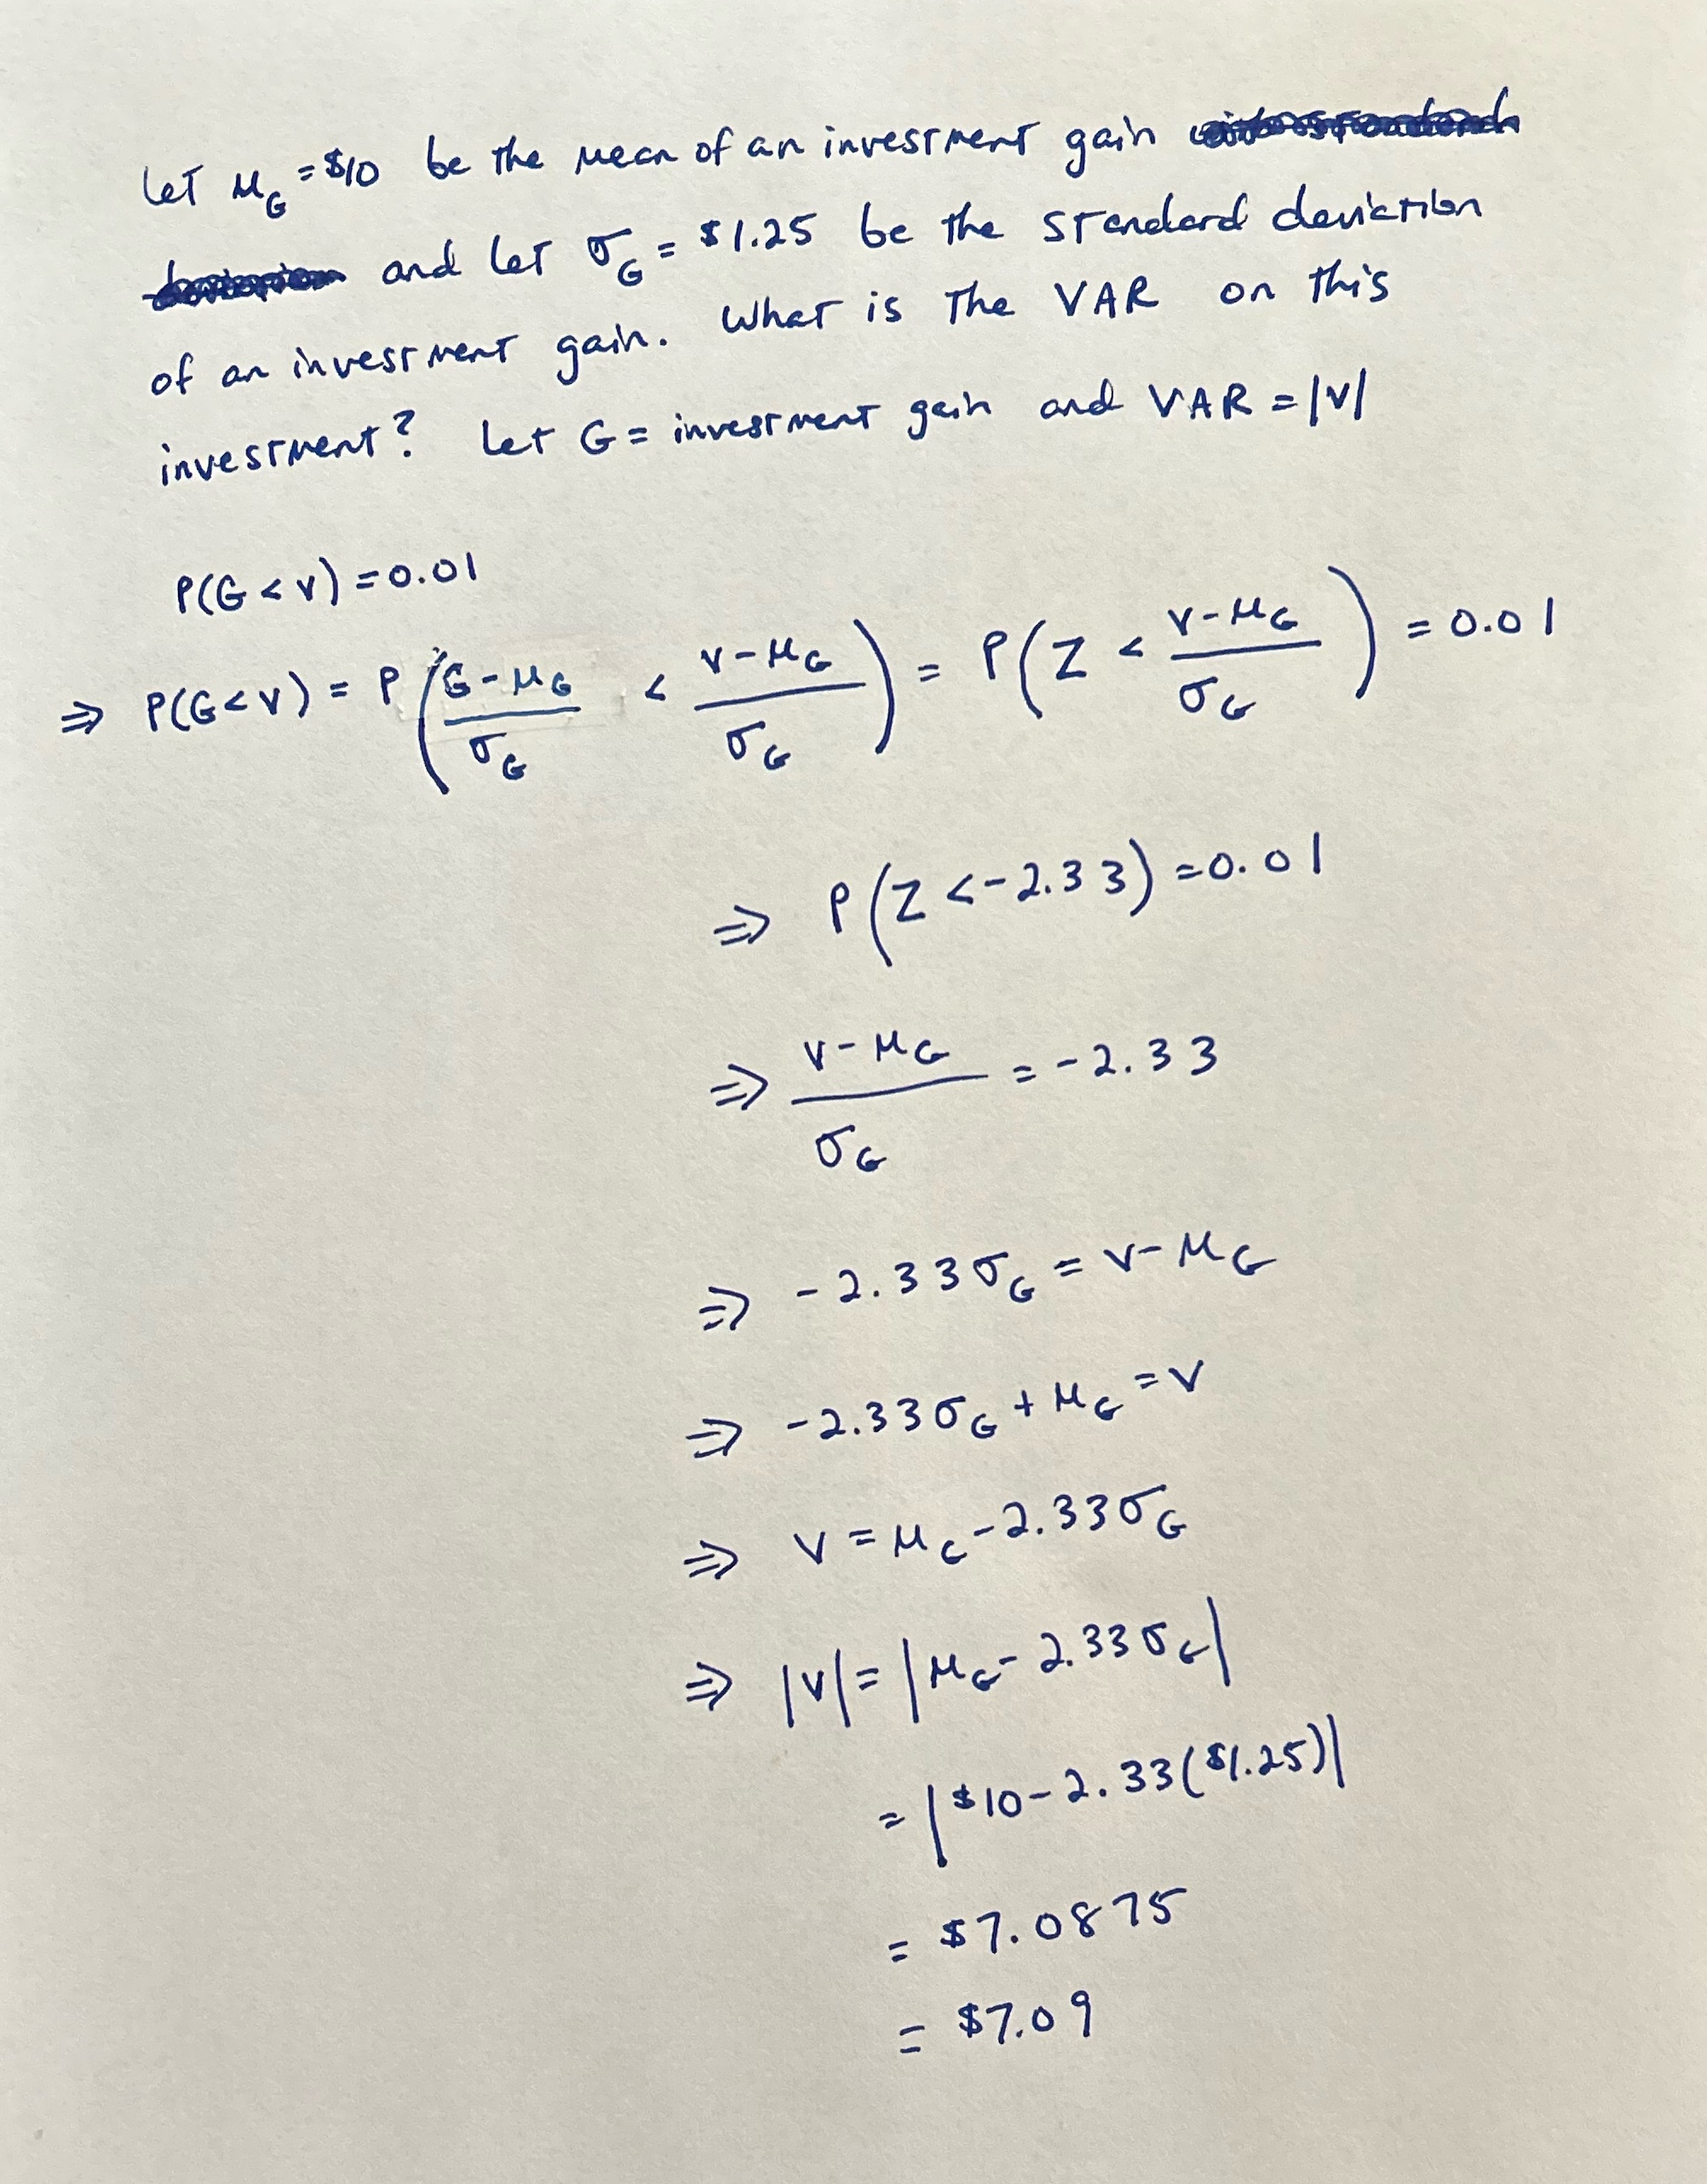 Let μ_G = $10 be the mean of an investment gain
and let σ_G = $1.25 be the standard deviation
of an investment gain. What is the VAR on this
investment? Let G = investment gain and VAR = |v|
P(G < v) = 0.01
⇒ P(G < v) = P((G - μ_G)/σ_G < (v - μ_G)/σ_G) = P(Z < (v - μ_G)/σ_G) = 0.01
⇒ P(Z < -2.33) = 0.01
⇒ (v - μ_G)/σ_G = -2.33
⇒ -2.33σ_G = v - μ_G
⇒ -2.33σ_G + μ_G = v
⇒ v = μ_G - 2.33σ_G
⇒ |v| = |μ_G - 2.33σ_G|
= |$10 - 2.33($1.25)|
= $7.0875
= $7.09